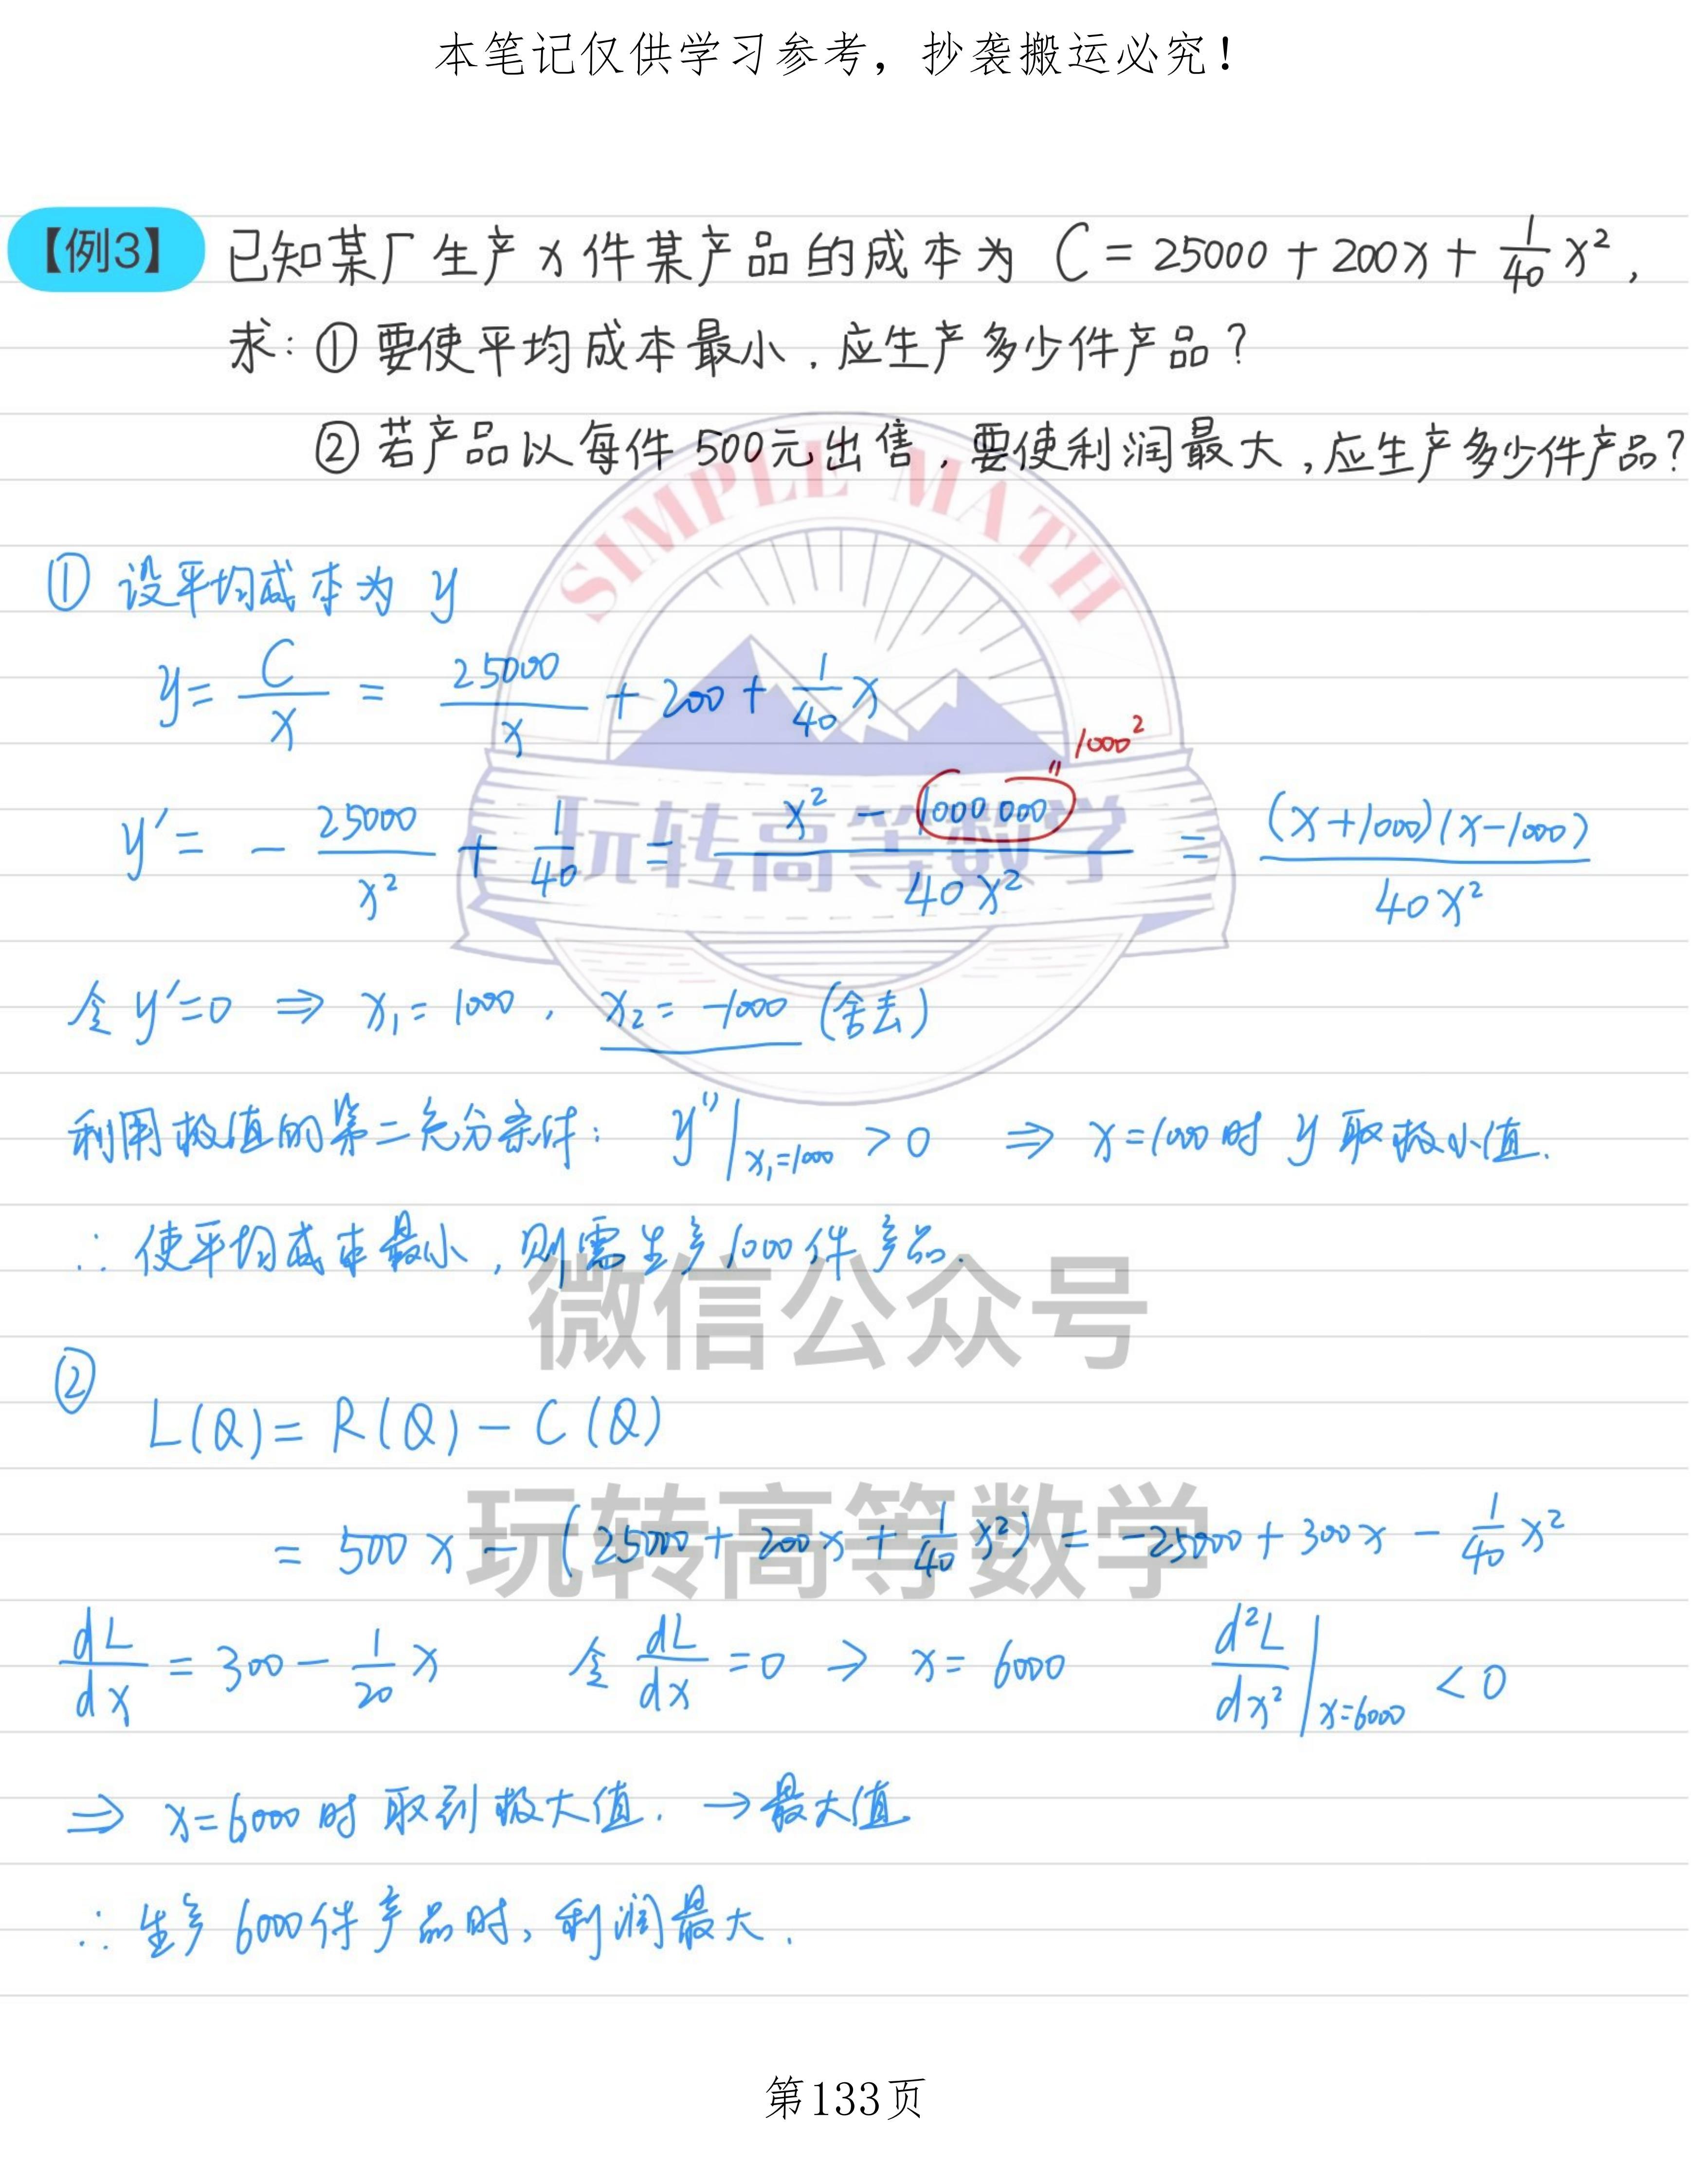 本笔记仅供学习参考，抄袭搬运必究！
【例3】 已知某厂生产x件某产品的成本为 C = 25000 + 200x + 1/40 x²,
求: ① 要使平均成本最小, 应生产多少件产品?
② 若产品以每件500元出售, 要使利润最大, 应生产多少件产品?
SIMPLE MATH
① 设平均成本为 y
y = C/x = 25000/x + 200 + 1/40 x
1000²
"
y' = - 25000/x² + 1/40 = (x² - 1000 000)/40x² = (x+1000)(x-1000)/40x²
玩转高等数学
令 y'=0 ⇒ x₁ = 1000, x₂ = -1000 (舍去)
利用极值的第二充分条件: y''|x₁=1000 > 0 ⇒ x=1000时 y 取极小值.
∴ 使平均成本最小, 则需生产1000件产品.
微信公众号
② L(Q) = R(Q) - C(Q)
玩转高等数学
= 500x - (25000 + 200x + 1/40 x²) = -25000 + 300x - 1/40 x²
dL/dx = 300 - 1/20 x 令 dL/dx = 0 → x = 6000 d²L/dx² |x=6000 < 0
⇒ x=6000时 取到极大值. → 最大值
∴ 生产6000件产品时, 利润最大.
第133页